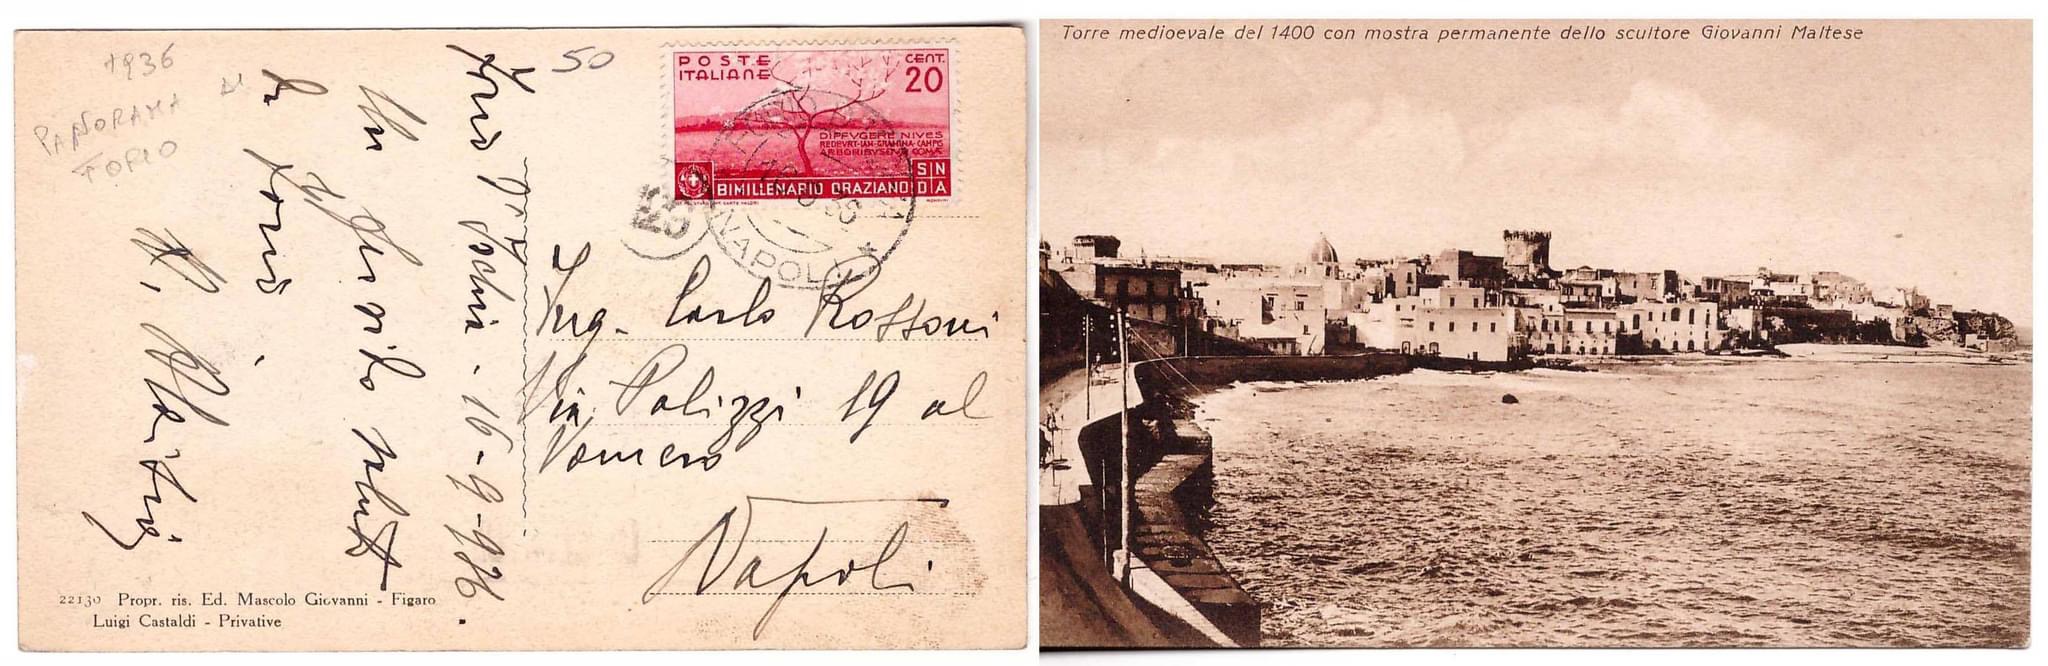 1936
PANORAMA DI
FORIO
50
POSTE
ITALIANE
CENT.
20
DIFFVGERE NIVES
REDEVNT·IAN·GRAMINA·CAMPIS
ARBORIBVSQVE COMÆ
BIMILLENARIO ORAZIANO
S N
D A
NAPOLI
Forio d'Ischia - 16-9-936
Un affettuoso saluto
da Forio.
Ing. Carlo Rossoni
Via Palizzi 19 al
Vomero
Napoli
22130 Propr. ris. Ed. Mascolo Giovanni - Figaro
Luigi Castaldi - Privative
Torre medioevale del 1400 con mostra permanente dello scultore Giovanni Maltese